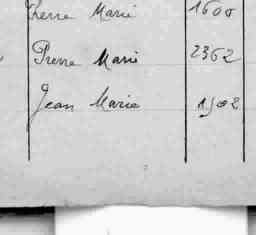 Pierre Marie 1600
Pierre Marie 2362
Jean Marie 1902